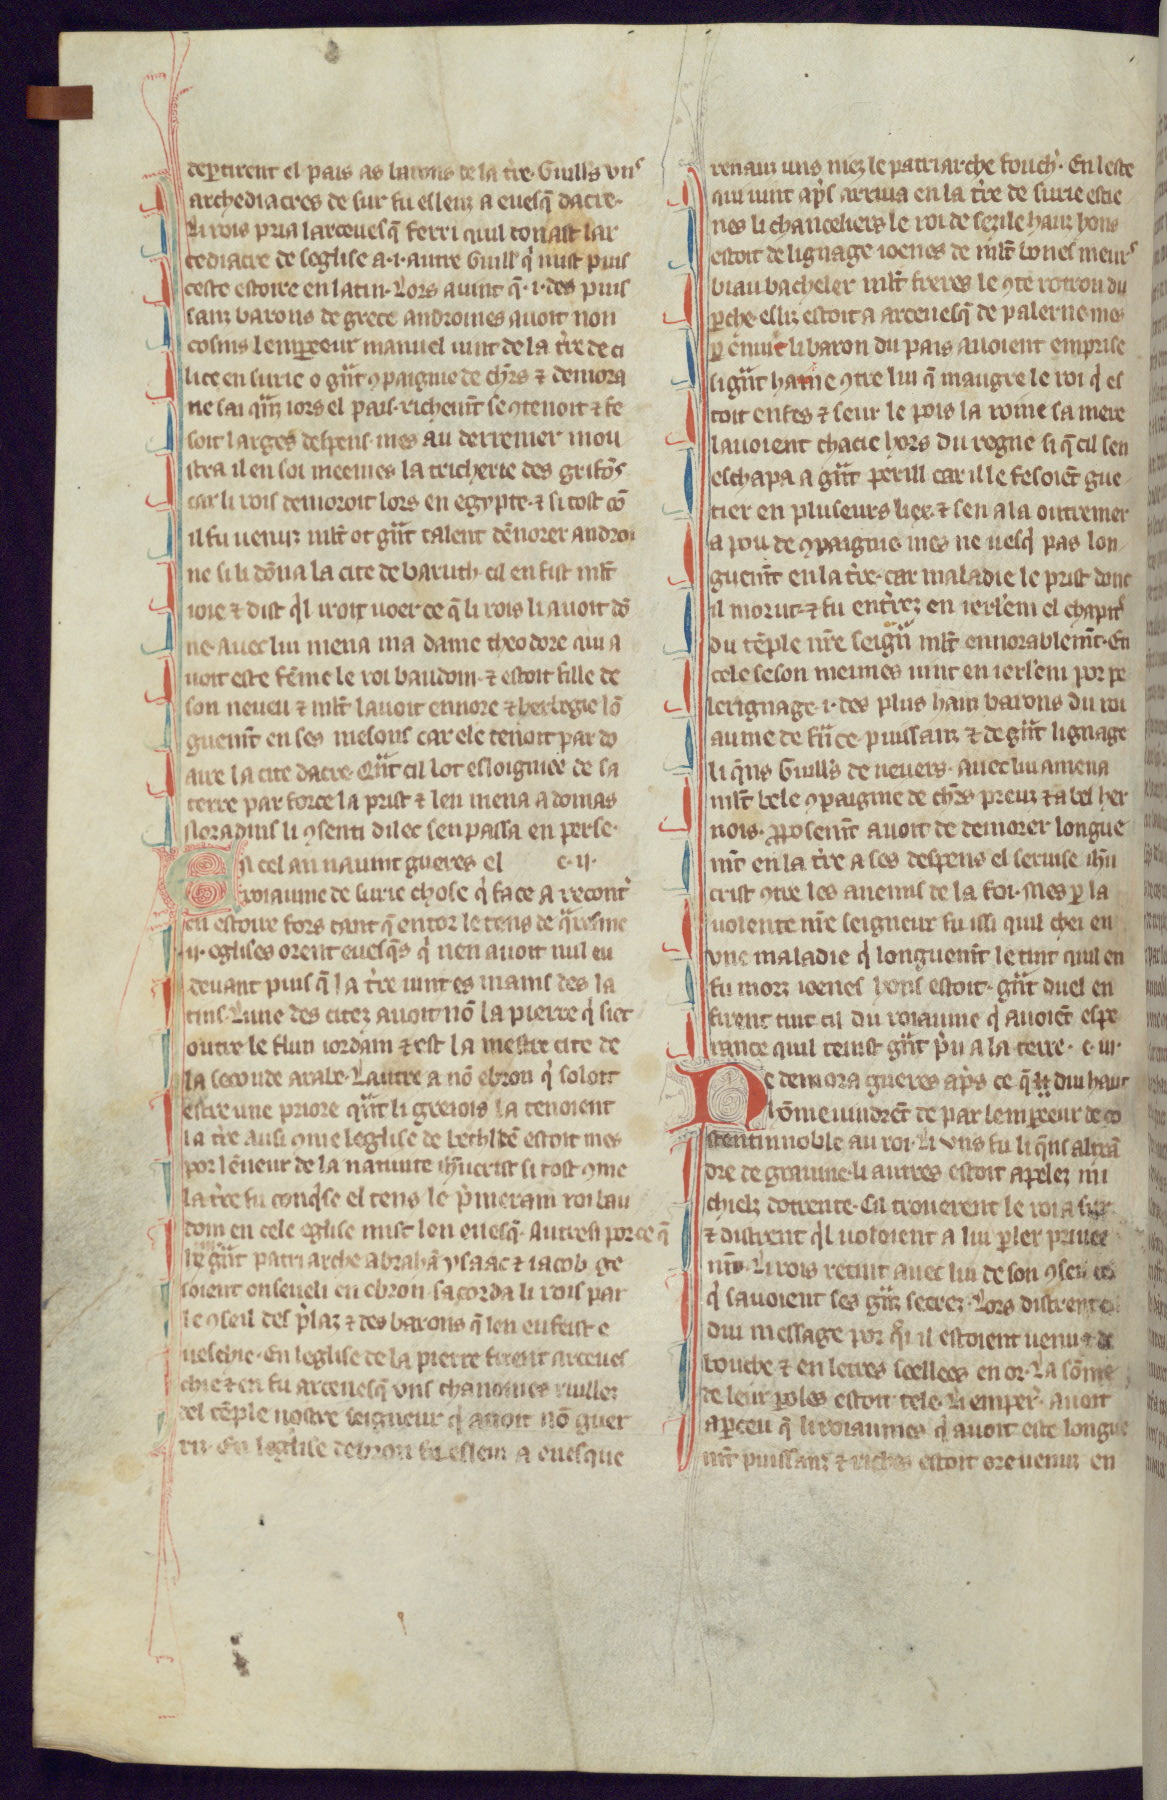 dep̱tirent el païs as barons de la t̃re. Guill's vns
archediacres de sur fu esleuz a euesq̃ dacre.
Li rois pria larceuesq̃ ferri quil donast lar
cediacre de leglise a .i. autre Guill' q̉ mist puis
ceste estoire en latin. Lors auint q̃ .i. des puis
sanz barons de grece androines auoit non
cosins lemp̱eeur manuel uint de la t̃re de ci
lice en surie o g̃nt ꝯpaignie de ch̃rs ⁊ demora
ne sai q̃nz iors el païs. richem̃t se ꝯtenoit ⁊ fe
soit larges despens. mes au derrenier mou
stra il en soi meemes la tricherie des grifõs
car li rois demoroit lors en egypte. ⁊ si tost cõ
il fu uenuz ml't ot g̃nt talent dẽnorer androi
ne si li dõna la cite de baruth. cil en fist ml't
ioie ⁊ dist q̉l iroit ueer ce q̃ li rois li auoit dõ
ne. auec lui mena ma dame theodore qui a
uoit este fẽme le roi baudoin. ⁊ estoit fille de
son neueu ⁊ ml't lauoit ennore ⁊ herbegie lõ
guem̃t en ses mesons car ele tenoit par do
aire la cite dacre. Q̃nt cil lot esloigniee de sa
terre par force la prist ⁊ len mena a domas
Noradins li ꝯsenti dilec sen passa en perse.
En cel an nauint gueres el c. ij.
roiaume de surie chose q̉ face a recont̉
en estoire fors tant q̃ entor le tens de q̃resme
.ij. eglises orent euesq̃s q̉ nen auoit nul eu
deuant puis q̃ la t̃re uint es mains des la
tins. Lune des citez auoit nõ la pierre q̉ siet
outre le flun iordain ⁊ est la mestre cite de
la seconde arabe. Lautre a nõ ebron q̉ soloit
estre une priore q̃nt li grezois la tenoient
la t̃re ausi ꝯme leglise de bethleẽ estoit mes
por lẽneur de la natiuite ih̃ucrist si tost ꝯme
la t̃re fu conq̉se el tens le p̉merain roi bau
doin en cele eglise mist len euesq̃. Autresi por ce q̃
li g̃nt patriarche abrahã ysaac ⁊ iacob ge
soient enseueli en ebron. sacorda li rois par
le ꝯseil des p̉laz ⁊ des barons q̃ len en feist e
ueschie. En leglise de la pierre firent arceues
chie ⁊ en fu arceuesq̃ uns chanoines riullez
del tẽple nostre seigneur q̉ auoit nõ guer
ris. En leglise debron fu esleuz a euesque
renauz uns niez le patriarche fouch̉. En leste
qui uint ap̃s arriua en la t̃re de surie estie
nes li chanceliers le roi de sezile hauz hons
estoit de lignage ioenes de ml't bones meurs
biau bacheler ml't freres le ꝯte rotrou du
p̱che. esliz estoit a arceuesq̃ de palerne mes
p̱ ẽnuie li baron du païs auoient emprise
si g̃nt haine ꝯtre lui q̃ maugre le roi q̉ es
toit enfes ⁊ seur le pois la roine sa mere
lauoient chacie hors du regne si q̃ cil sen
eschapa a g̃nt perill car il le fesoiẽt gue
tier en pluseurs liex. ⁊ sen ala outremer
a pou de ꝯpaignie. mes ne uesq̉ pas lon
guem̃t en la t̃re. car maladie le prist dont
il morut. ⁊ fu ent̉rez en ierl'em el chapit̉
du tẽple n̄re seign̉ ml't ennorablem̃t. En
cele seson meimes uint en ierl'em por pe
lerignage .i. des plus hauz barons du roi
aume de frãce. puissanz ⁊ de g̃nt lignage
li q̃ns Guill's de neuers. auec lui amena
ml't bele ꝯpaignie de ch̃rs preuz ⁊ a bel her
nois. p̱posem̃t auoit de demorer longue
m̃t en la t̃re a ses despens el seruise ih̃u
crist ꝯtre les anemis de la foi. Mes p̱ la
uolente n̄re seigneur fu issi quil chei en
vne maladie q̉ longuem̃t le tint quil en
fu morz ioenes hons estoit. g̃nt duel en
firent tuit cil du roiaume q̉ auoiẽt espe
rance quil feist g̃nt p̉u a la terre. c. iij.
Ne demora gueres ap̃s ce q̃ dui haut
hõme uindrẽt de par lemp̱eeur de co
stentinnoble au roi. Li vns fu li q̃ns alixã
dre de grauine. li autres estoit apelez mi
chielz dotrente. Cil trouerent le roi a sur
⁊ distrent q̉l uoloient a lui p̱ler priuee
m̃t. Li rois retint auec lui de son ꝯseil ces
q̉ sauoient ses g̃nz secrez. Lors distrent ci
dui message por q̉i il estoient uenu ⁊ de
bouche ⁊ en letres seellees en or. La sõme
de leur p̱oles estoit tele. Li emper̉. auoit
ap̱ceu q̃ li roiaumes q̉ auoit este longue
m̃t puissanz ⁊ riches estoit ore uenuz en